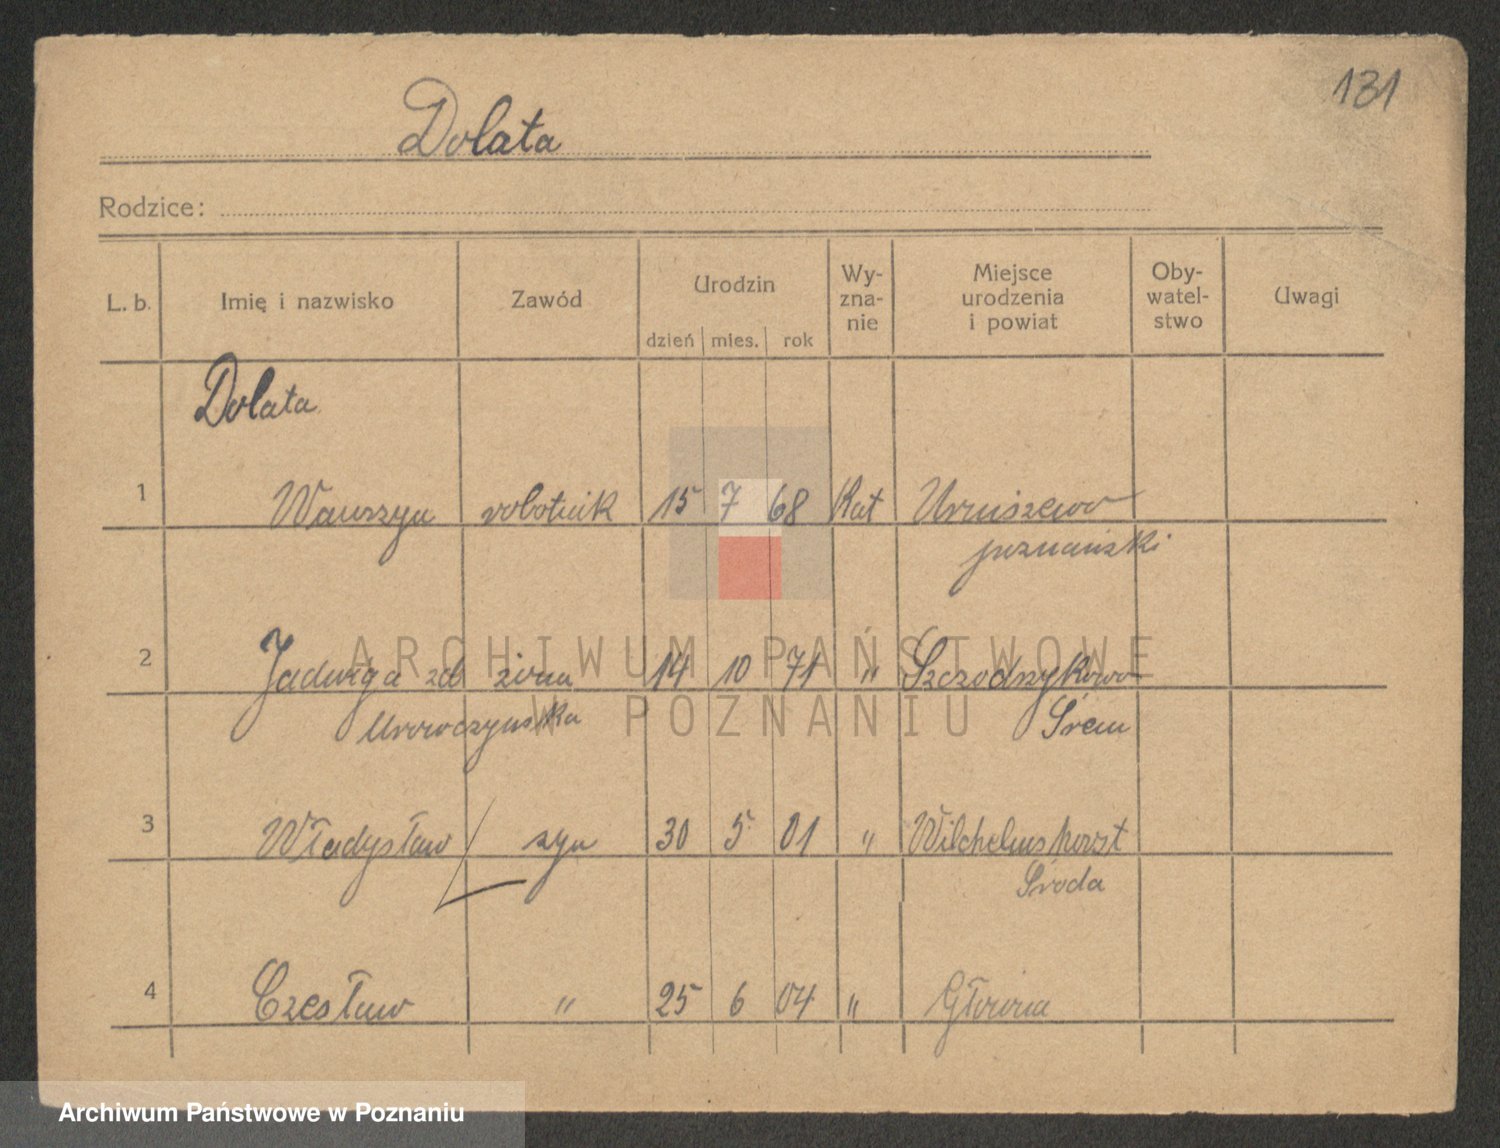 131
Dolata
Rodzice:
L. b. Imię i nazwisko Zawód Urodzin dzień mies. rok Wy-zna-nie Miejsce urodzenia i powiat Oby-watel-stwo Uwagi
Dolata
1 Wawrzyn robotnik 15 7 68 Kat
poznański
2 Jadwiga zd żona 14 10 71 " Szczodrzykowo
Śrem
3 Władysław syn 30 5 01 " Wilchelmshorst
Środa
4 Czesław " 25 6 04 " Główna
ARCHIWUM PAŃSTWOWE
W POZNANIU
Archiwum Państwowe w Poznaniu